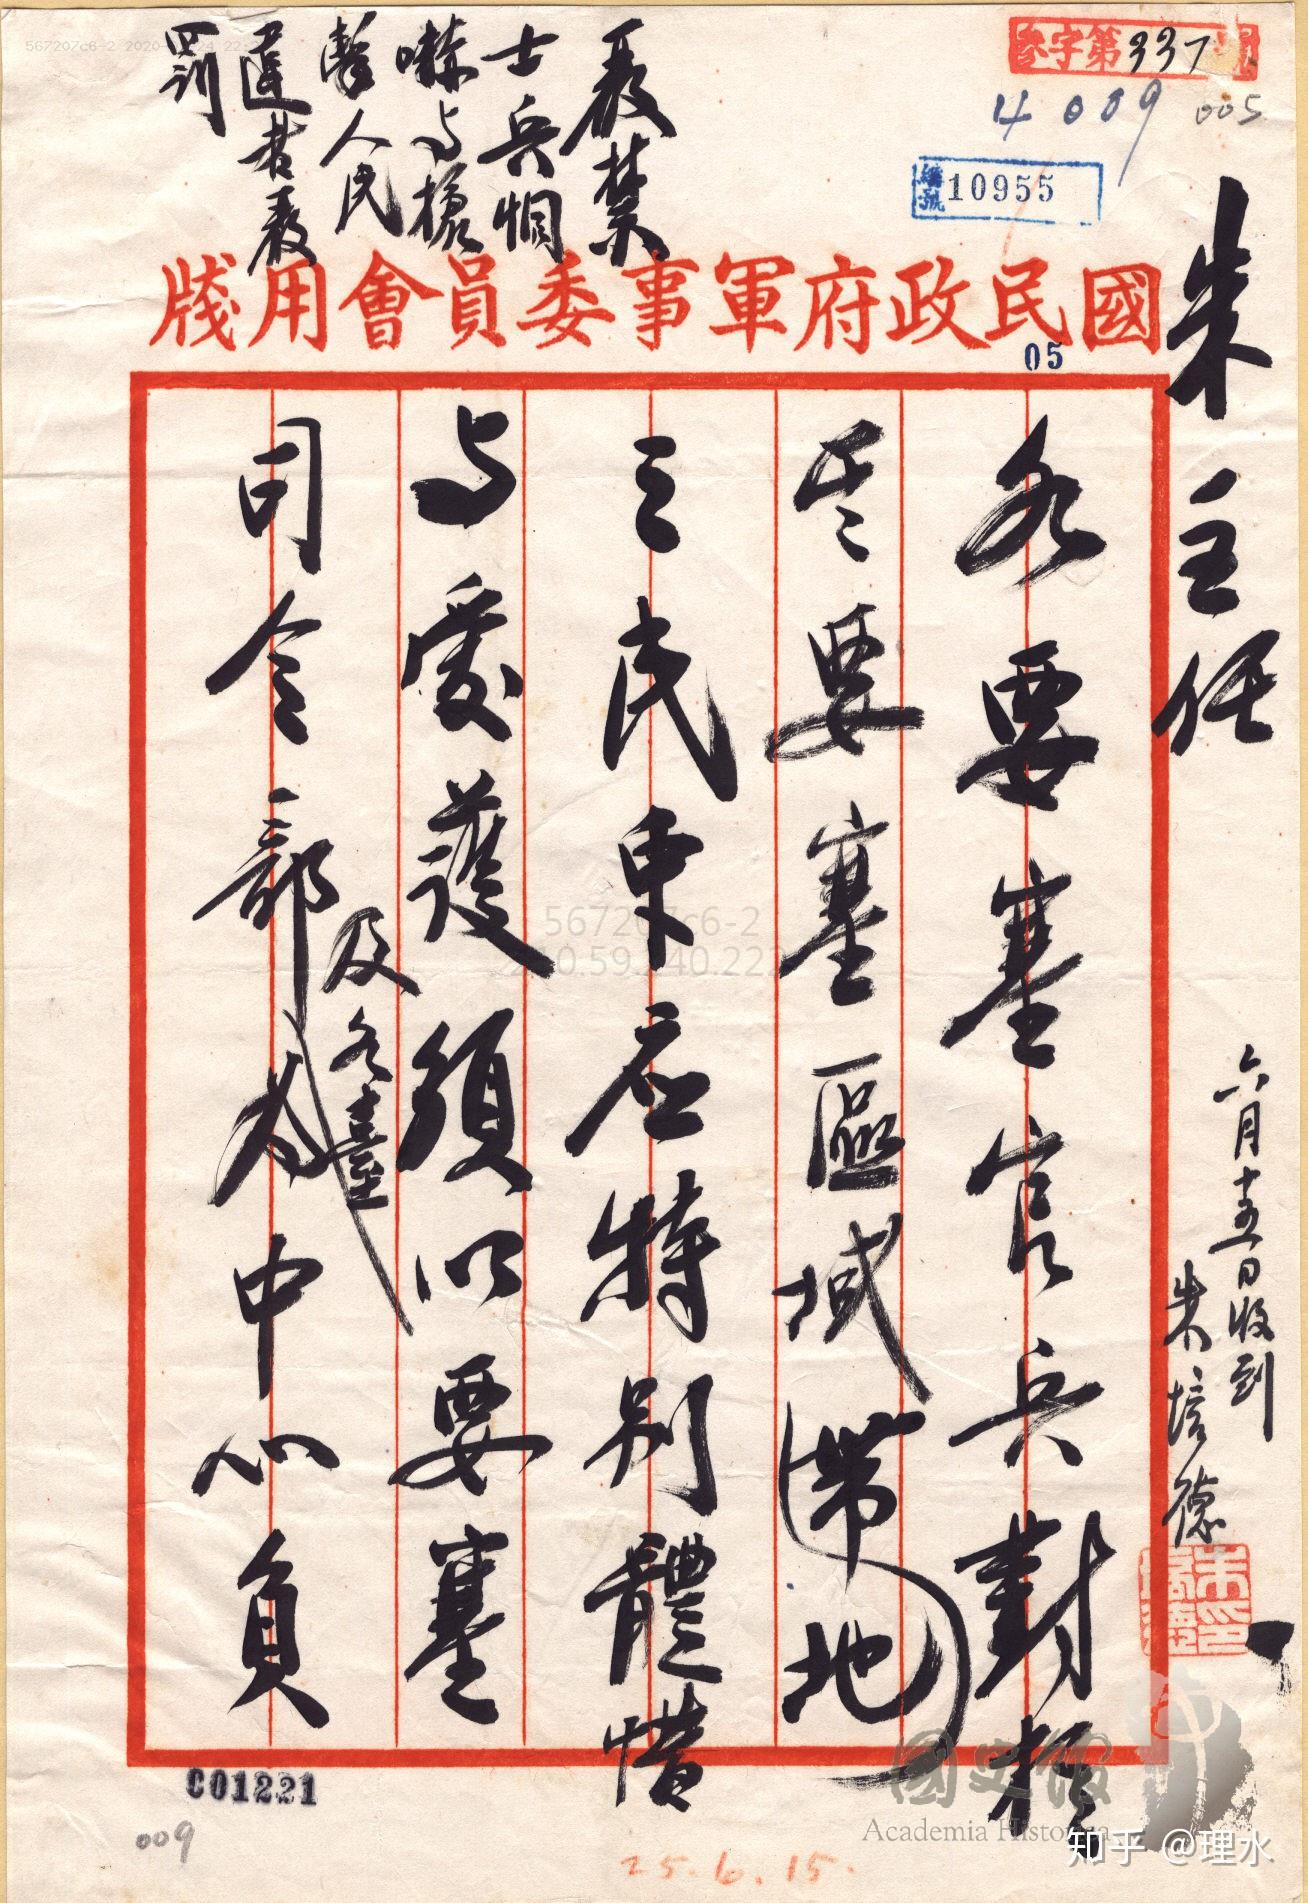 參字第337號
4009
005
編號10955
嚴禁
士兵恫
嚇与槍
擊人民
違者嚴
罰
國民政府軍事委員會用牋
05
朱主任
各要塞官兵對於
其要塞區域帶地
之民眾应特別體惜
与愛護須以要塞
司令部為中心負
及各臺
六月十五日收到
朱培德
C01221
009
25.6.15.
國史館
Academia Historica
567207c6-2
知乎 @理水